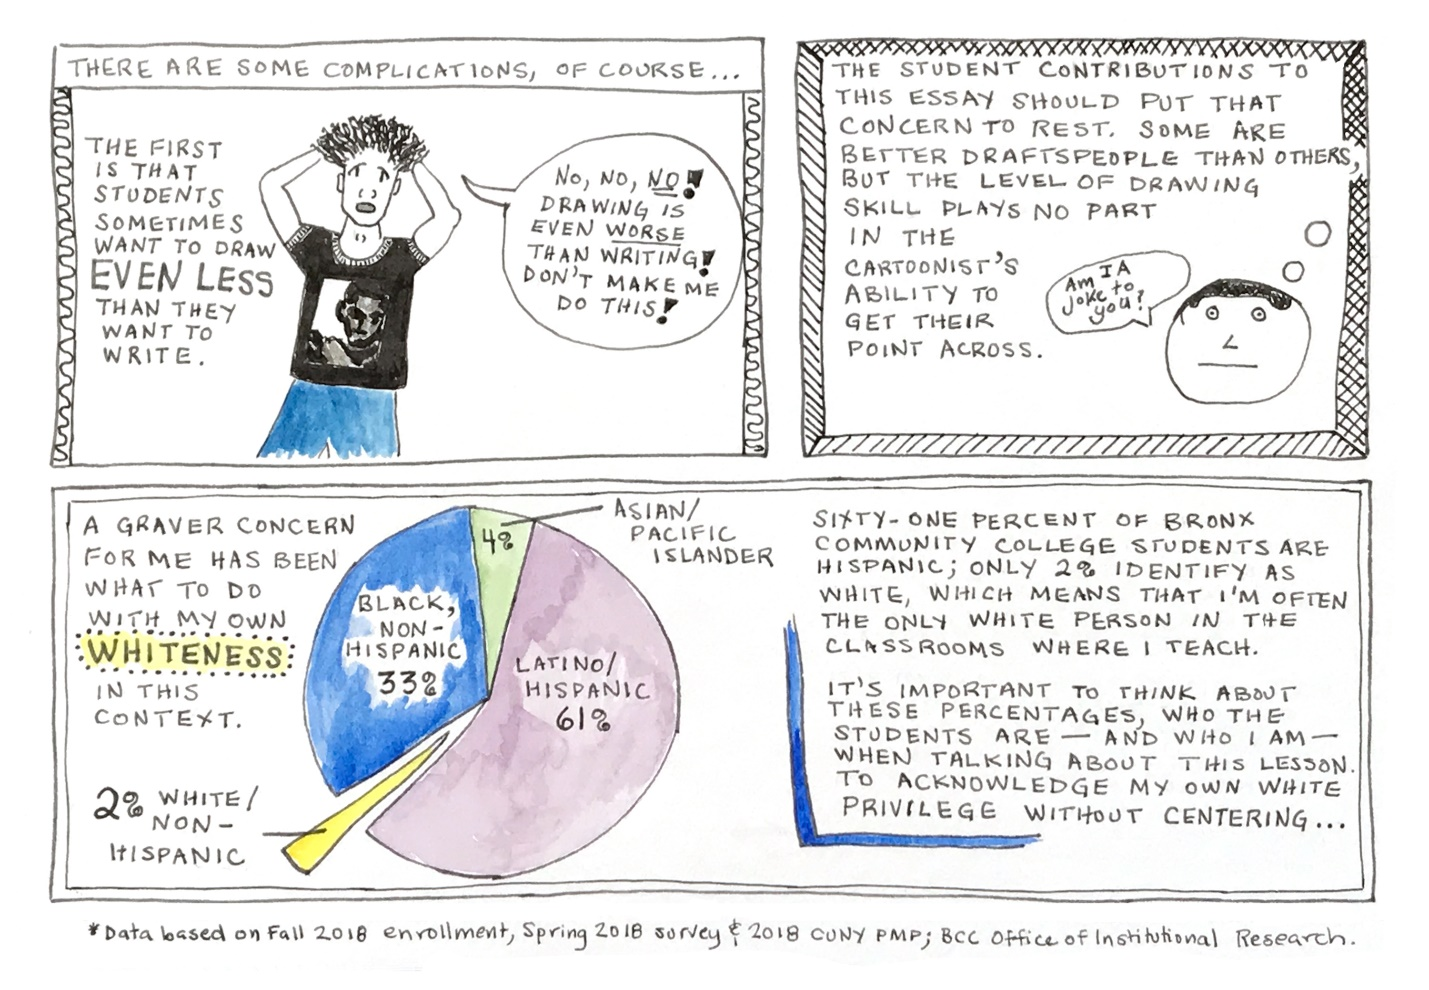 THERE ARE SOME COMPLICATIONS, OF COURSE...
THE FIRST
IS THAT
STUDENTS
SOMETIMES
WANT TO DRAW
EVEN LESS
THAN THEY
WANT TO
WRITE.
NO, NO, NO!
DRAWING IS
EVEN WORSE
THAN WRITING!
DON'T MAKE ME
DO THIS!
THE STUDENT CONTRIBUTIONS TO
THIS ESSAY SHOULD PUT THAT
CONCERN TO REST. SOME ARE
BETTER DRAFTSPEOPLE THAN OTHERS,
BUT THE LEVEL OF DRAWING
SKILL PLAYS NO PART
IN THE
CARTOONIST'S
ABILITY TO
GET THEIR
POINT ACROSS.
Am I A
joke to
you?
A GRAVER CONCERN
FOR ME HAS BEEN
WHAT TO DO
WITH MY OWN
WHITENESS
IN THIS
CONTEXT.
BLACK,
NON-
HISPANIC
33%
4%
ASIAN/
PACIFIC
ISLANDER
LATINO/
HISPANIC
61%
2% WHITE/
NON-
HISPANIC
SIXTY-ONE PERCENT OF BRONX
COMMUNITY COLLEGE STUDENTS ARE
HISPANIC; ONLY 2% IDENTIFY AS
WHITE, WHICH MEANS THAT I'M OFTEN
THE ONLY WHITE PERSON IN THE
CLASSROOMS WHERE I TEACH.
IT'S IMPORTANT TO THINK ABOUT
THESE PERCENTAGES, WHO THE
STUDENTS ARE — AND WHO I AM —
WHEN TALKING ABOUT THIS LESSON.
TO ACKNOWLEDGE MY OWN WHITE
PRIVILEGE WITHOUT CENTERING...
*Data based on Fall 2018 enrollment, Spring 2018 survey & 2018 CUNY PMP; BCC Office of Institutional Research.